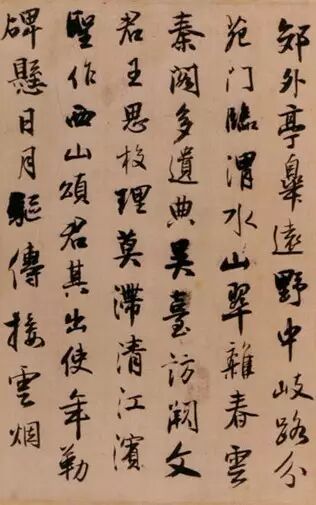 郊外亭皋遠野中岐路分
苑門臨渭水山翠雜春雲
秦閣多遺典吴臺訪闕文
君王思校理莫滯清江濱
聖作西山頌君其出使年勒
碑懸日月驅傳接雲烟